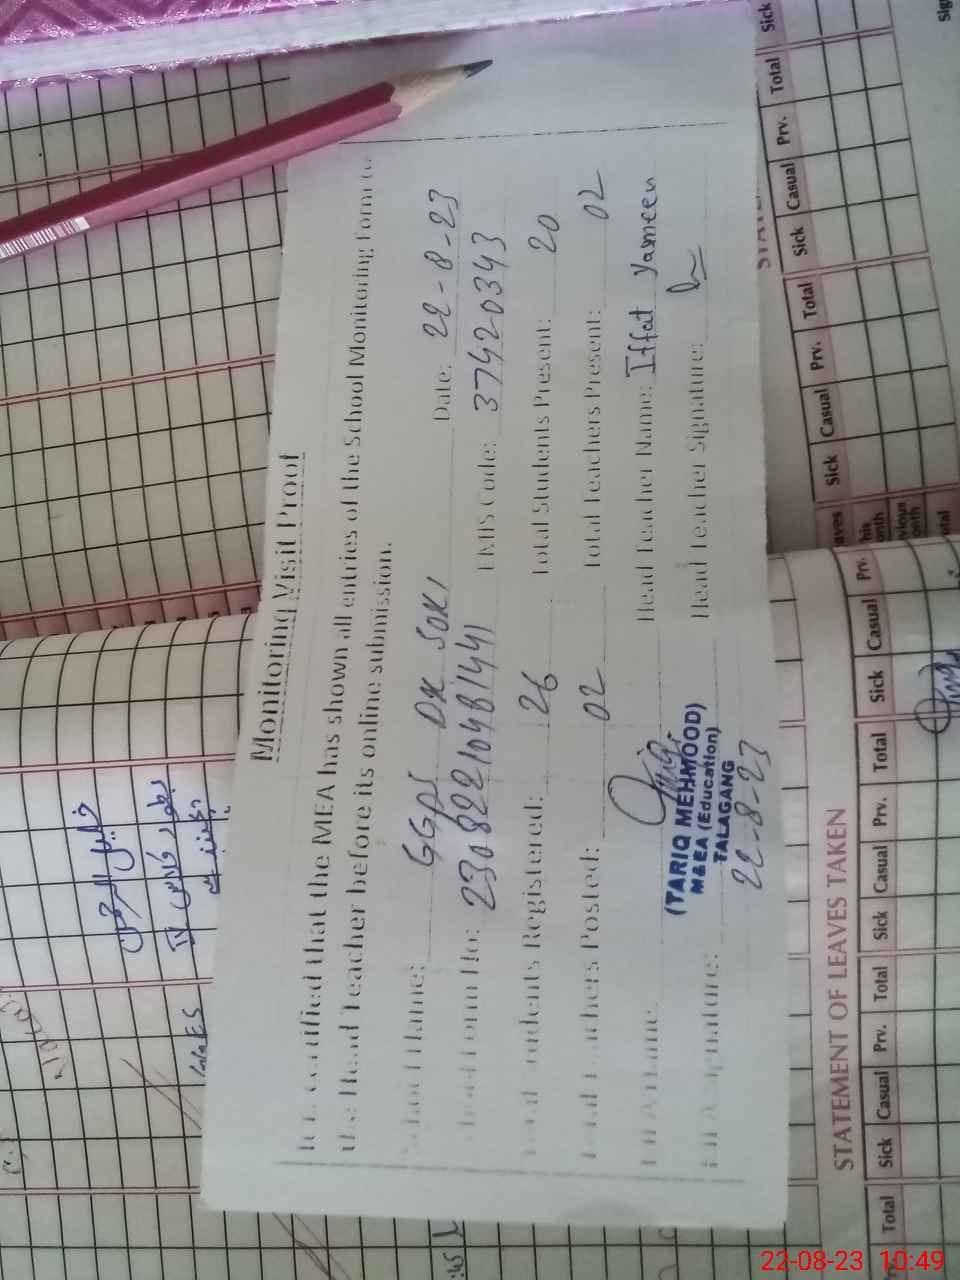 Monitoring Visit Proof
It is certified that the MEA has shown all entries of the School Monitoring Form to
the Head Teacher before its online submission.
School Name: GGPS DK SOKI Date: 22-8-23
Form No: 23082210481441 EMIS Code: 37420343
Total Students Registered: 26 Total Students Present: 20
Total Teachers Posted: 02 Total Teachers Present: 02
MEA Name: Head Teacher Name: Iffat Yameen
(TARIQ MEHMOOD)
M&EA (Education)
TALAGANG
MEA Signature: Head Teacher Signature:
22-8-23
خلیل الرحمن
بطور کلاس IV
STATEMENT OF LEAVES TAKEN
Total Sick Casual Prv. Total Sick Casual Prv. Total Sick Casual Prv.
Sick Casual Prv. Total Sick Casual Prv. Total Sick
22-08-23 10:49